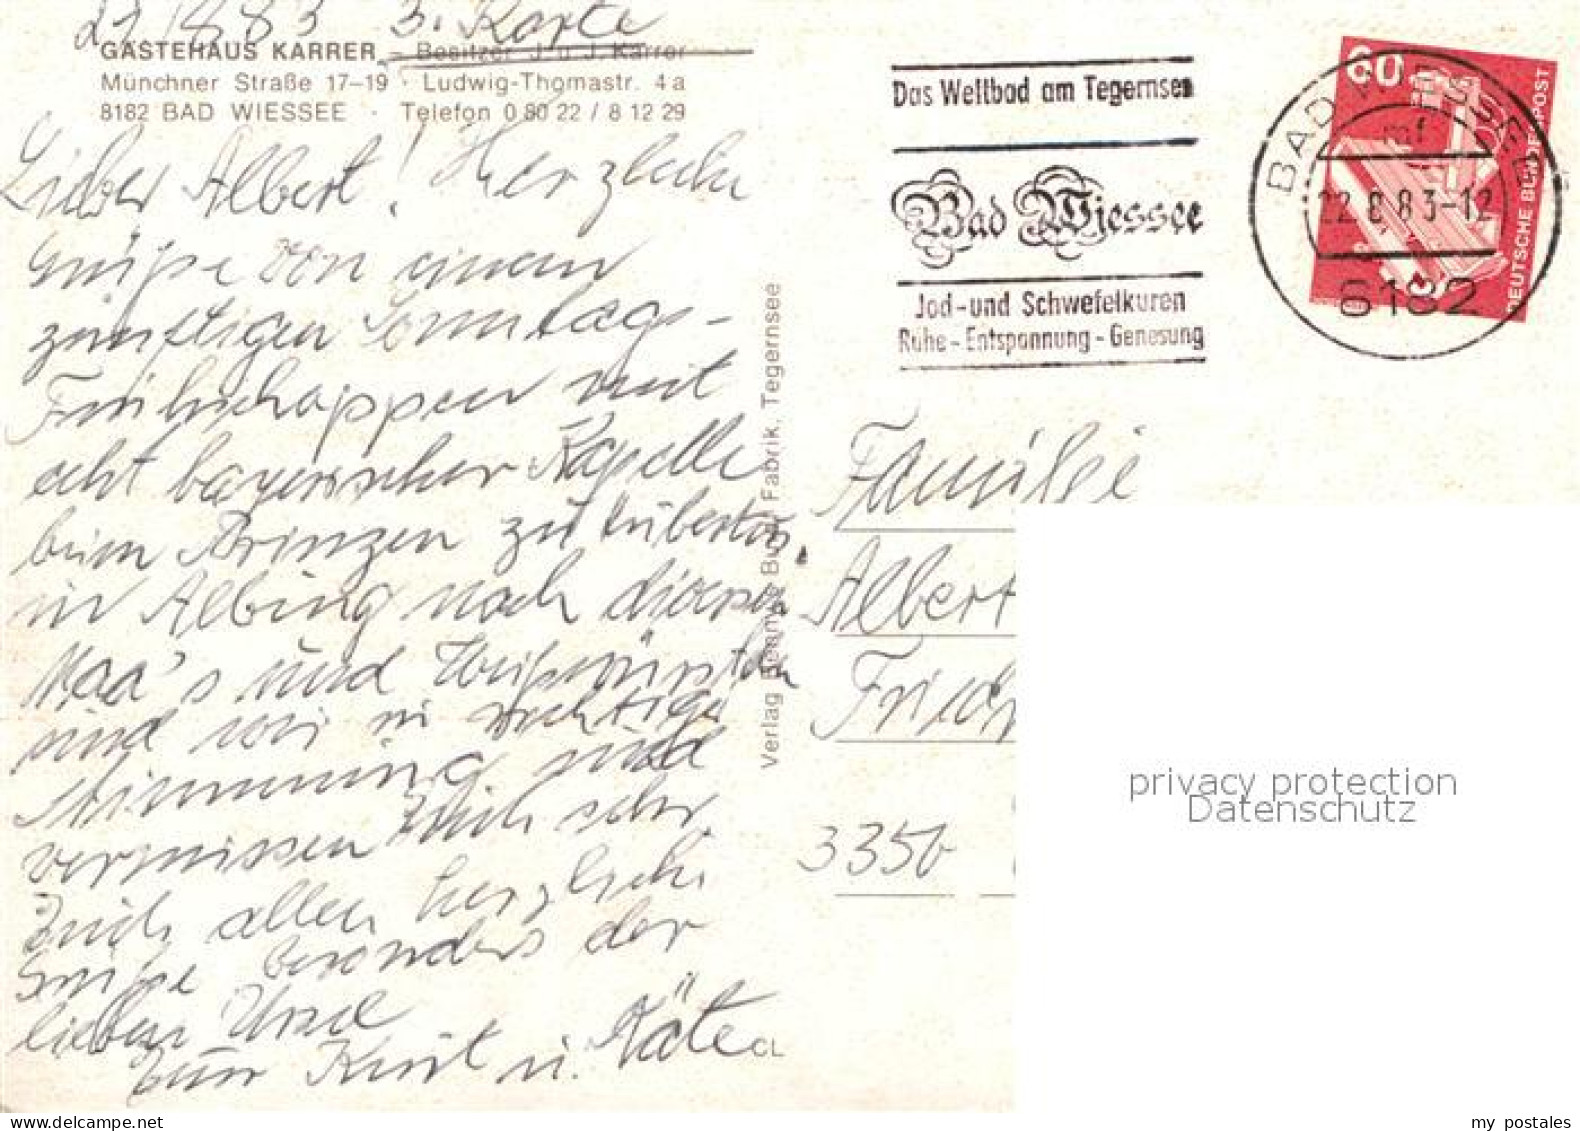 21.8.83 3. Karte
GÄSTEHAUS KARRER - Besitzer J. u. J. Karrer
Münchner Straße 17–19 · Ludwig-Thomastr. 4a
8182 BAD WIESSEE · Telefon 0 80 22 / 8 12 29
Lieber Albert! Herzliche
Grüße von einem
zünftigen Sonntags-
Frühschoppen mit
echt bayerischer Kapelle
beim Prinzen zu
in Albing nach diversen
Maa's und Weißwürsten
sind wir in richtiger
Stimmung und
vermissen Euch sehr
Euch allen herzliche
Grüße besonders der
lieben
Eure Kurt u. Käte
CL
Verlag Benny's Fabrik, Tegernsee
Das Weltbad am Tegernsee
Bad Wiessee
Jod-und Schwefelkuren
Ruhe-Entspannung-Genesung
60
DEUTSCHE BUNDESPOST
BAD WIESSEE
mf
22.8.83-12
8182
Familie
Albert
Friedr
3356
privacy protection
Datenschutz
my postales